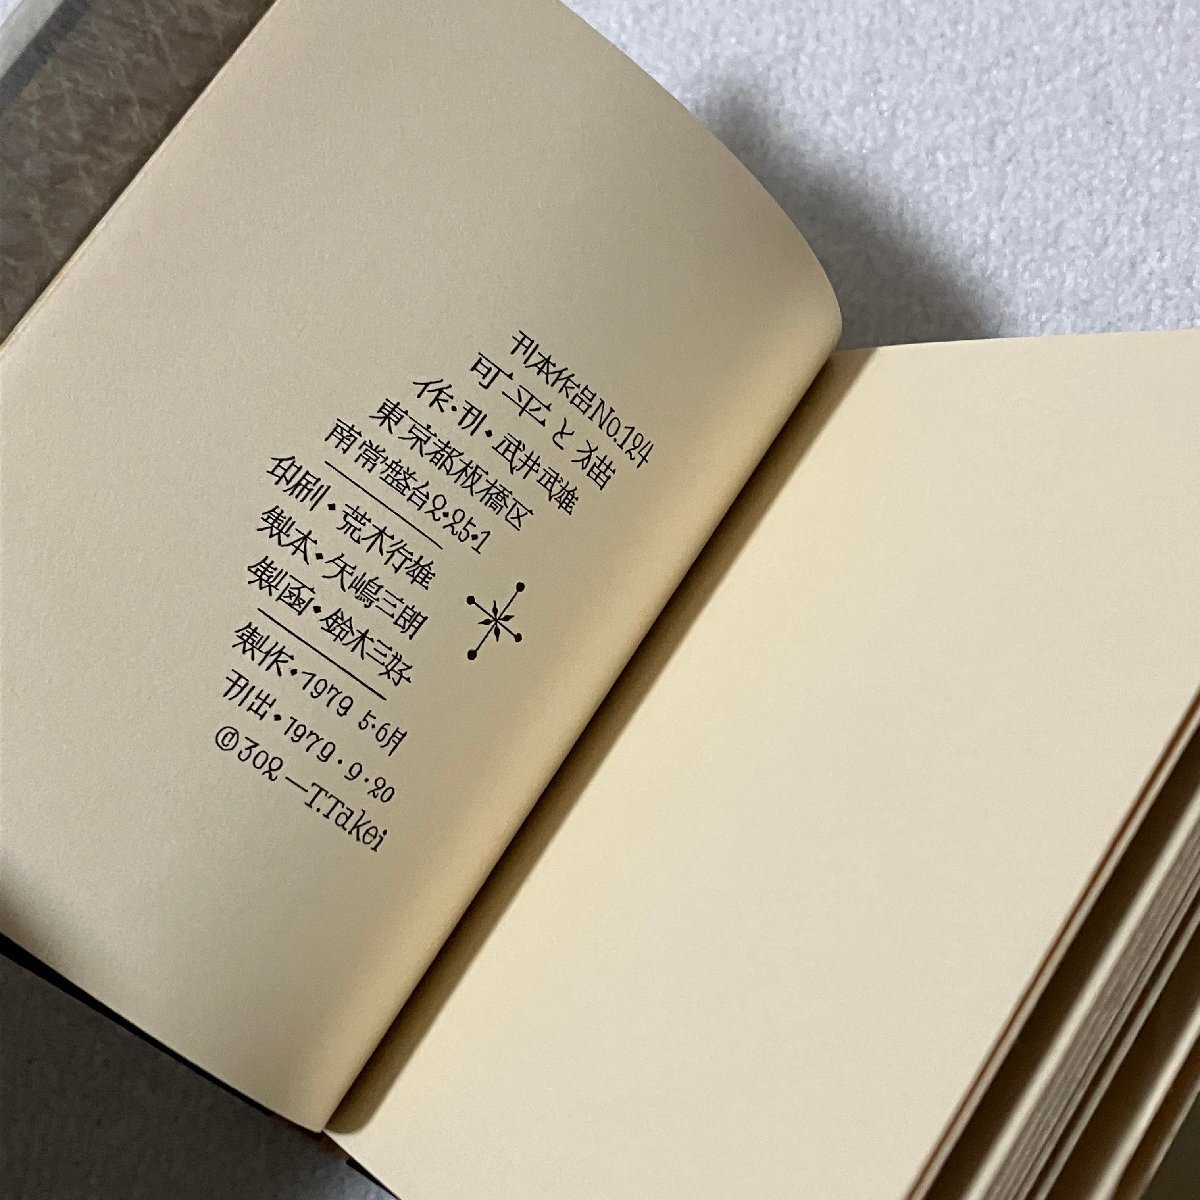 刊本作品No.124
可平と猫
作・刊・武井武雄
東京都板橋区
南常盤台2・25・1
印刷・荒木行雄
製本・矢嶋三朗
製函・鈴木三好
製作・1979 5・6月
刊出・1979・9・20
©302—T.Takei